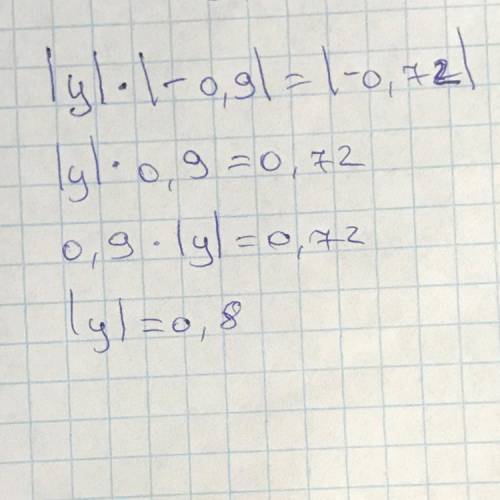 |y|·|-0,9|=|-0,72|
|y|·0,9=0,72
0,9·|y|=0,72
|y|=0,8